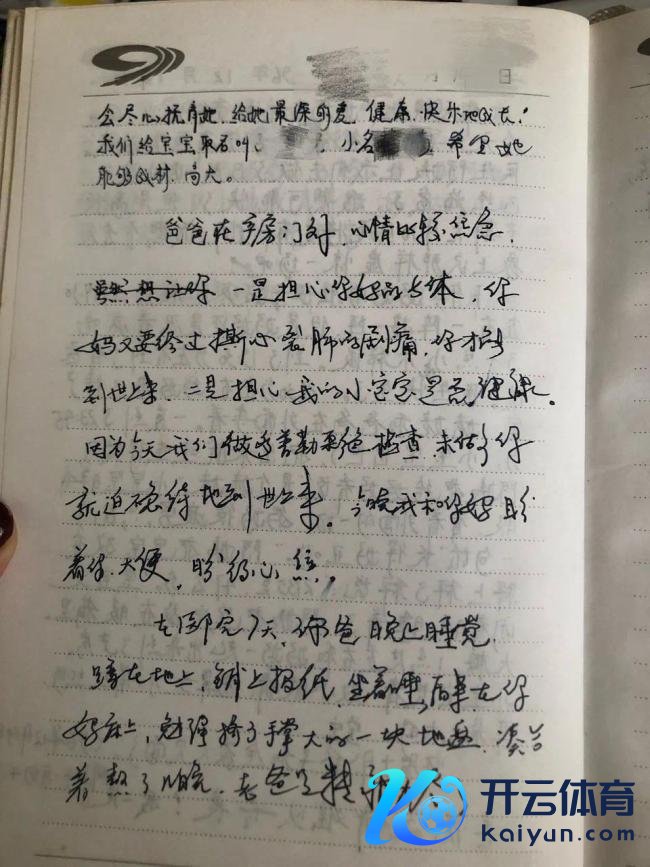 会尽心抚养她，给她最深的爱，健康、快乐地成长！
我们给宝宝取名叫 小名 希望她
能够成材、高大。
爸爸在产房门外，心情比较焦急，
一是担心你妈的身体，你
妈又要经过撕心裂肺的剧痛，你才能
到世上来，二是担心我的小宝宝是否健康。
因为今天我们做 彩色检查，未做多 你
就迫 待地到世上来。今晚我和你妈盼
着你大便，盼 心焦。
在医院7天，你爸晚上睡觉，
在地上，铺上报纸，坐着睡，后来在你
妈床上，勉强挤了手掌大的一块地盘，凑合
着熬了 晚，老爸
开云体育
kaiyun.com